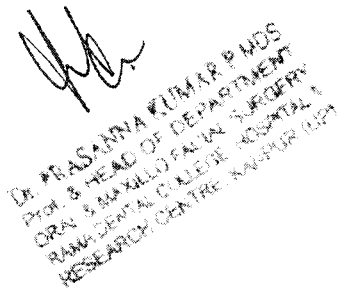 Dr. PRASANNA KUMAR P MDS
Prof. & HEAD OF DEPARTMENT
ORAL & MAXILLO FACIAL SURGERY
RAMA DENTAL COLLEGE HOSPITAL &
RESEARCH CENTRE, KANPUR (UP)